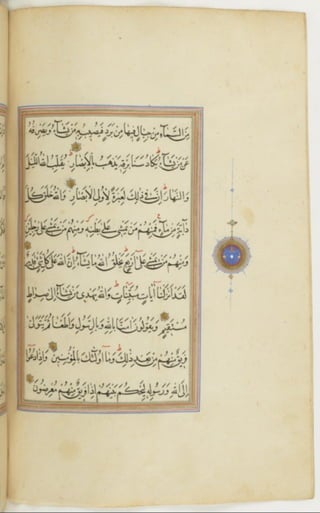 مِنَ السَّمَآءِ مِنْ جِبَالٍ فِيهَا مِنْ بَرَدٍ فَيُصِيبُ بِهِ مَنْ يَشَآءُ وَيَصْرِفُهُ
عَنْ مَنْ يَشَآءُ يَكَادُ سَنَا بَرْقِهِ يَذْهَبُ بِالْأَبْصَارِ يُقَلِّبُ اللهُ اللَّيْلَ
وَالنَّهَارَ إِنَّ فِي ذٰلِكَ لَعِبْرَةً لِأُولِي الْأَبْصَارِ وَاللهُ خَلَقَ كُلَّ
دَآبَّةٍ مِنْ مَآءٍ فَمِنْهُمْ مَنْ يَمْشِي عَلَى بَطْنِهِ وَمِنْهُمْ مَنْ يَمْشِي عَلَى رِجْلَيْنِ
وَمِنْهُمْ مَنْ يَمْشِي عَلَى أَرْبَعٍ يَخْلُقُ اللهُ مَا يَشَآءُ إِنَّ اللهَ عَلَى كُلِّ شَيْءٍ قَدِيرٌ
لَقَدْ أَنْزَلْنَا آيَاتٍ مُبَيِّنَاتٍ وَاللهُ يَهْدِي مَنْ يَشَآءُ إِلَى صِرَاطٍ
مُسْتَقِيمٍ وَيَقُولُونَ آمَنَّا بِاللهِ وَبِالرَّسُولِ وَأَطَعْنَا ثُمَّ يَتَوَلَّى
فَرِيقٌ مِنْهُمْ مِنْ بَعْدِ ذٰلِكَ وَمَآ أُولٰئِكَ بِالْمُؤْمِنِينَ وَإِذَا دُعُوا
إِلَى اللهِ وَرَسُولِهِ لِيَحْكُمَ بَيْنَهُمْ إِذَا فَرِيقٌ مِنْهُمْ مُعْرِضُونَ